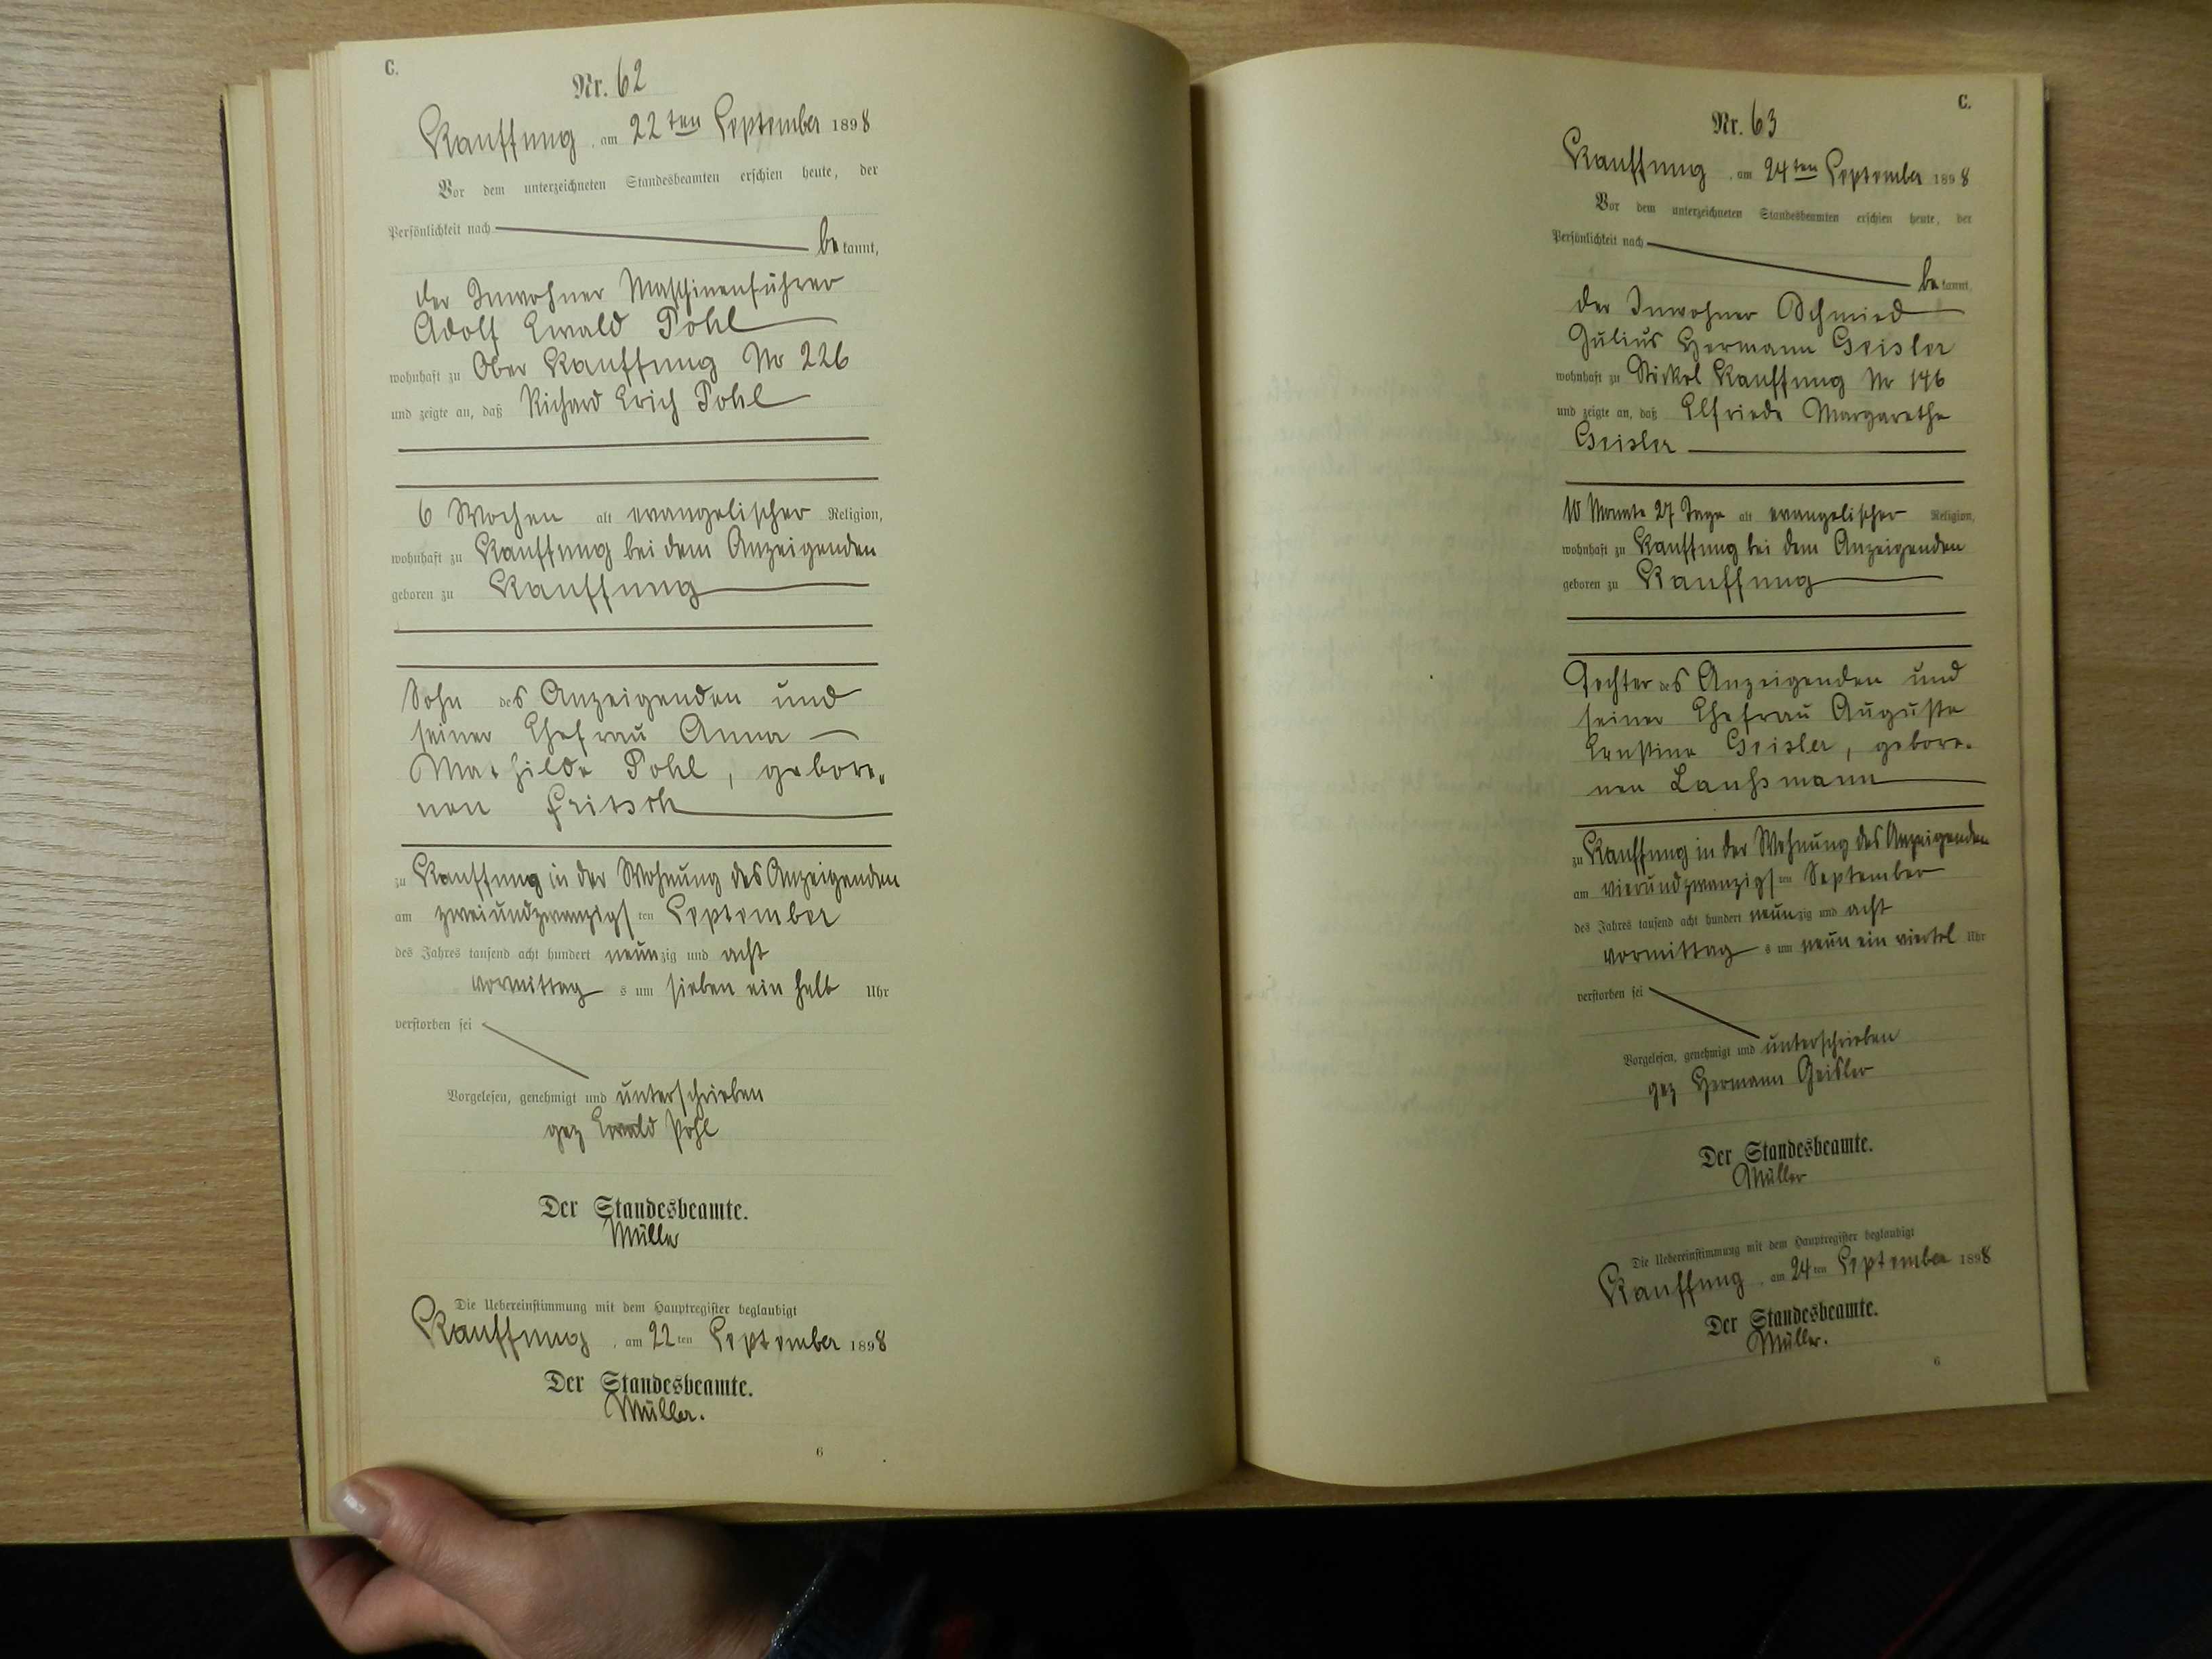 C.
Nr. 62
Kauffung, am 22ten September 1898
Vor dem unterzeichneten Standesbeamten erschien heute, der
Persönlichkeit nach
bekannt,
der Inwohner Maschinenführer
Adolf Ewald Pohl
wohnhaft zu Ober Kauffung Nr 226
und zeigte an, daß Richard Erich Pohl
6 Wochen alt evangelischer Religion,
wohnhaft zu Kauffung bei dem Anzeigenden
geboren zu Kauffung
Sohn des Anzeigenden und
seiner Ehefrau Anna
Mathilde Pohl, gebore-
nen Fritsch
zu Kauffung in der Wohnung des Anzeigenden
am zweiundzwanzigsten September
des Jahres tausend acht hundert neunzig und acht
vormittags um sieben ein halb Uhr
verstorben sei
Vorgelesen, genehmigt und unterschrieben
gez Ewald Pohl
Der Standesbeamte.
Müller
Die Uebereinstimmung mit dem Hauptregister beglaubigt
Kauffung, am 22ten September 1898
Der Standesbeamte.
Müller.
6
C.
Nr. 63
Kauffung, am 24ten September 1898
Vor dem unterzeichneten Standesbeamten erschien heute, der
Persönlichkeit nach
bekannt,
der Inwohner Schmied
Julius Hermann Geisler
wohnhaft zu Kauffung Nr 146
und zeigte an, daß Elfriede Margarethe
Geisler
10 Monate 27 Tage alt evangelischer Religion,
wohnhaft zu Kauffung bei dem Anzeigenden
geboren zu Kauffung
Tochter des Anzeigenden und
seiner Ehefrau Auguste
Ernstine Geisler, gebore-
nen Laußmann
zu Kauffung in der Wohnung des Anzeigenden
am vierundzwanzigsten September
des Jahres tausend acht hundert neunzig und acht
vormittags um neun ein viertel Uhr
verstorben sei
Vorgelesen, genehmigt und unterschrieben
gez Hermann Geisler
Der Standesbeamte.
Müller
Die Uebereinstimmung mit dem Hauptregister beglaubigt
Kauffung, am 24ten September 1898
Der Standesbeamte.
Müller.
6